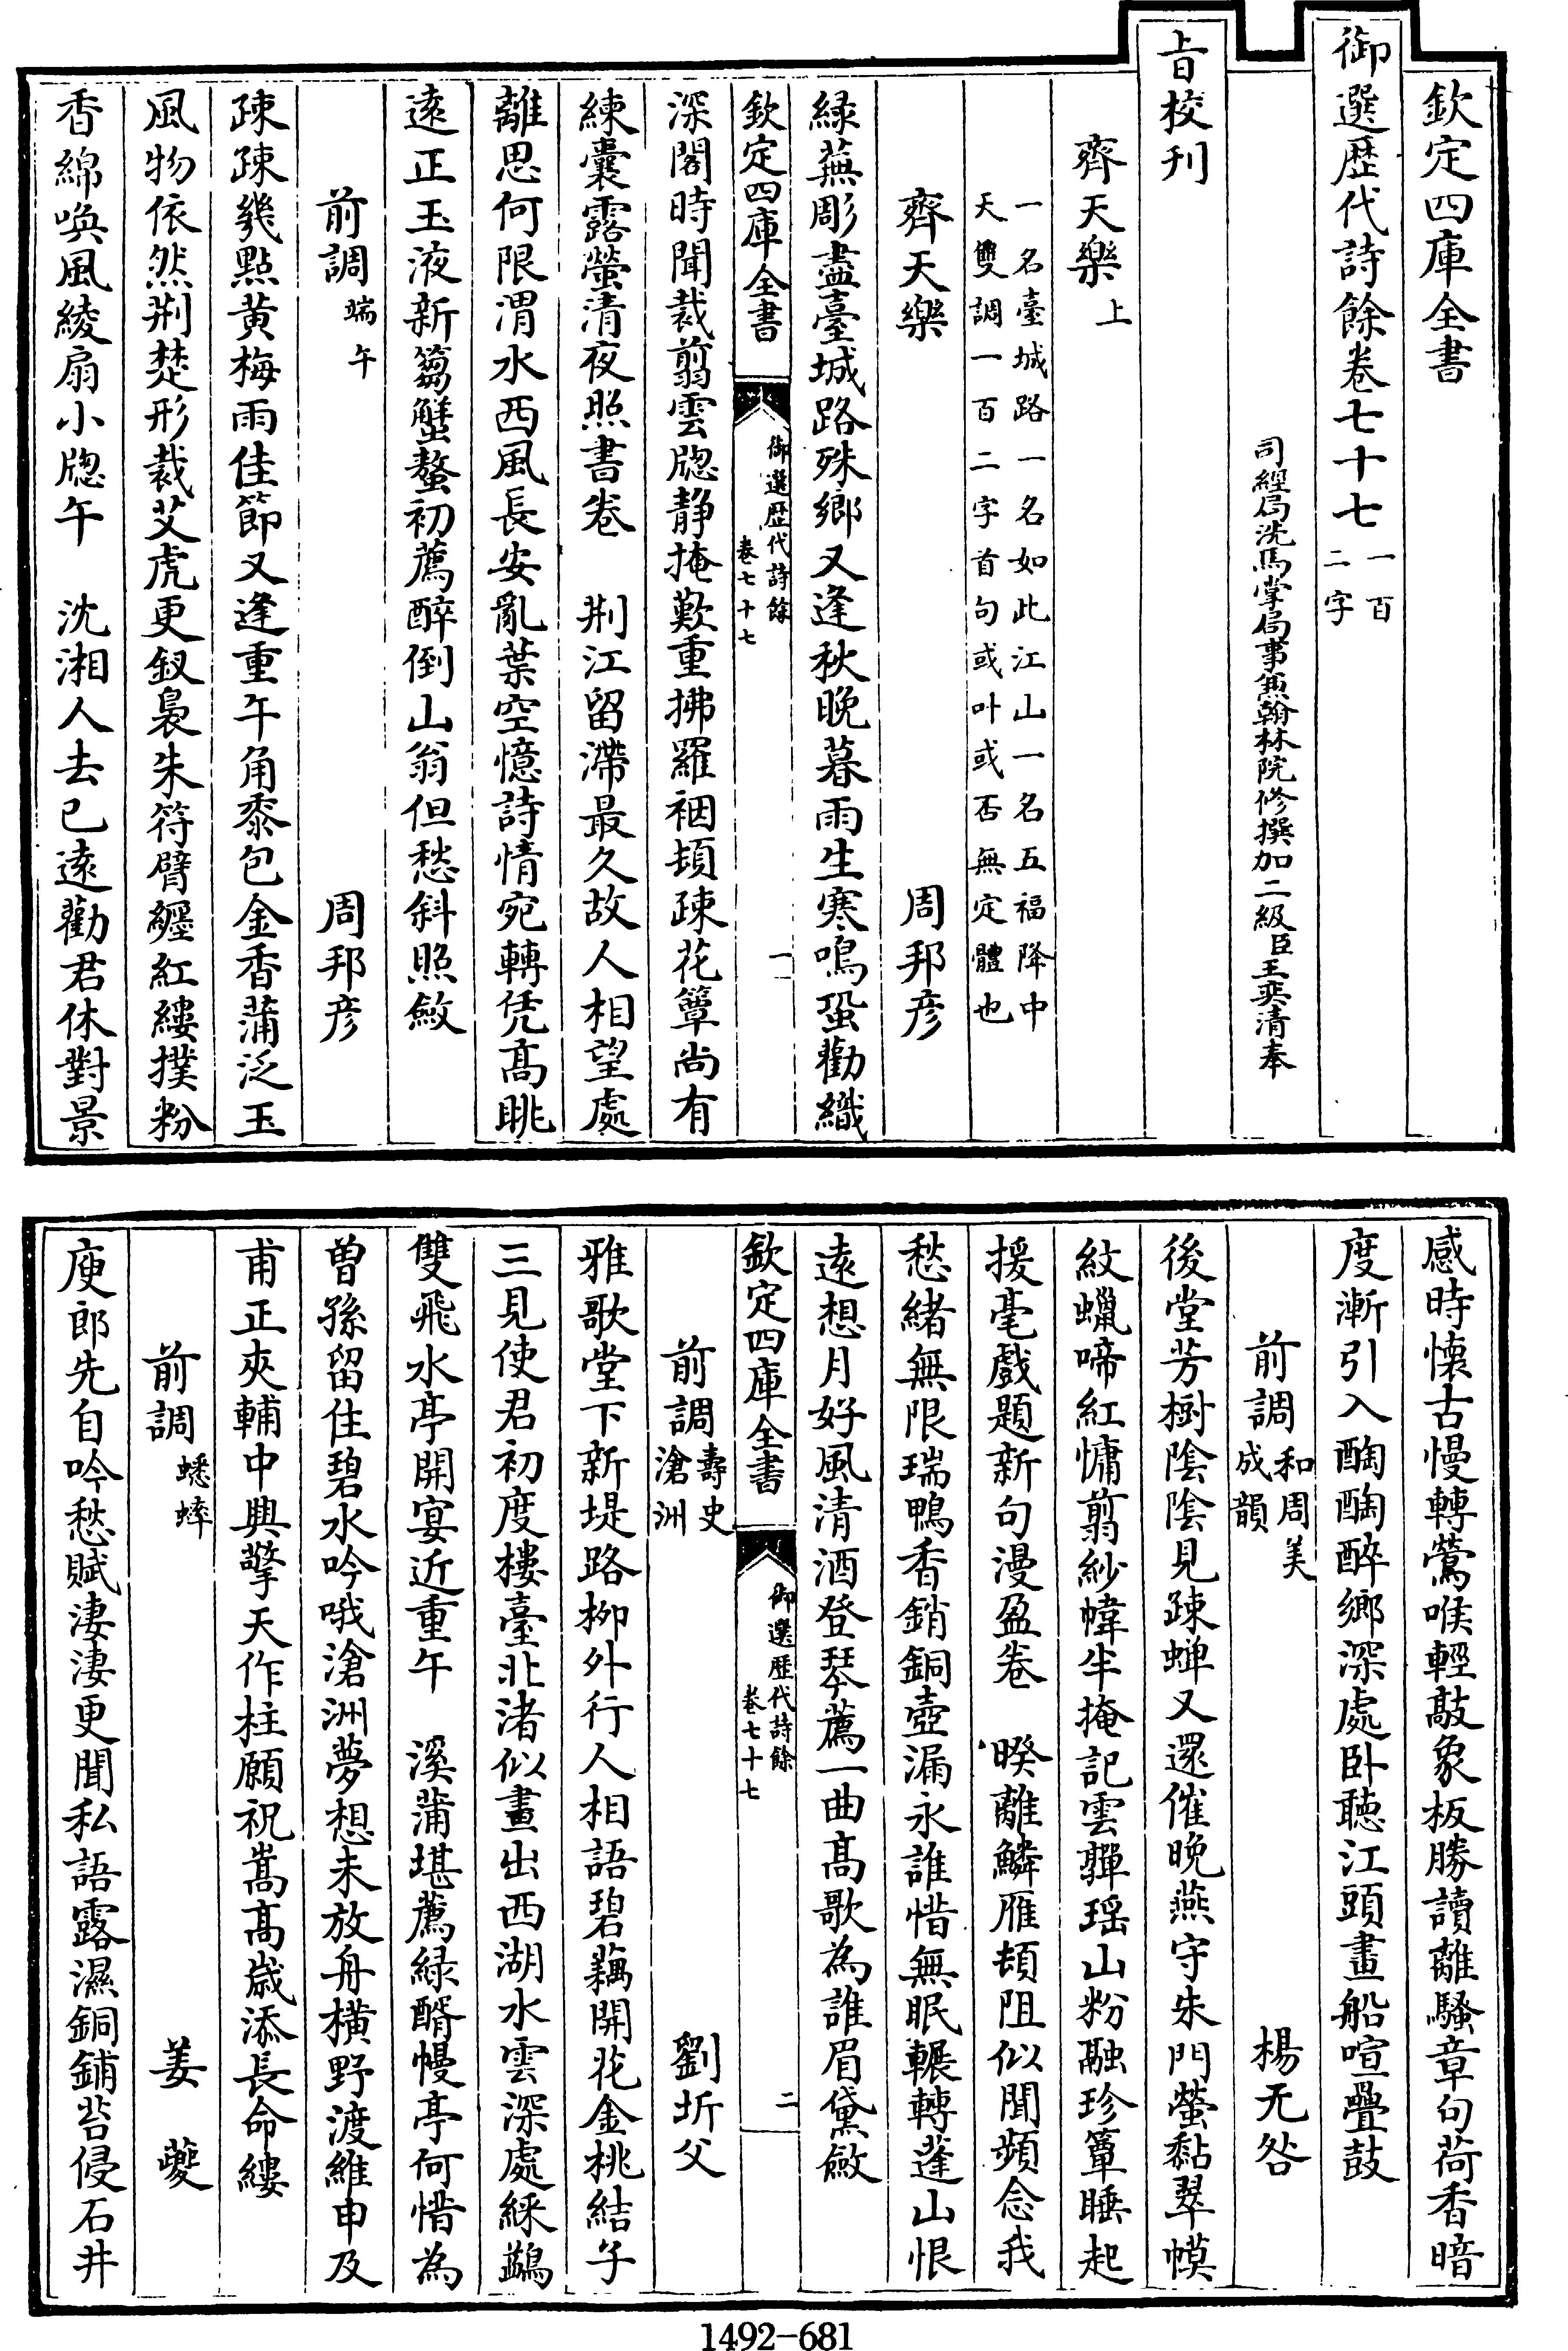 欽定四庫全書
御選歴代詩餘卷七十七一百二字
司經局洗馬掌局事兼翰林院修撰加二級臣王奕清奉
旨校刊
齊天樂上
一名臺城路一名如此江山一名五福降中
天雙調一百二字首句或叶或否無定體也
齊天樂　周邦彦
緑蕪彫盡臺城路殊鄉又逢秋晚暮雨生寒鳴蛩勸織
欽定四庫全書　御選歴代詩餘卷七十七　一
深閣時聞裁翦雲牎静掩歎重拂羅裀頓疎花簟尚有
練囊露螢清夜照書卷　荆江留滯最久故人相望處
離思何限渭水西風長安亂葉空憶詩情宛轉凭髙眺
逺正玉液新篘蟹螯初薦醉倒山翁但愁斜照斂
前調端午　周邦彦
疎疎幾點黄梅雨佳節又逢重午角黍包金香蒲泛玉
風物依然荆楚形裁艾虎更釵裊朱符臂纒紅縷撲粉
香綿喚風綾扇小牎午　沈湘人去已逺勸君休對景
感時懐古慢轉鶯喉輕敲象板勝讀離騷章句荷香暗
度漸引入醄醄醉鄉深處卧聴江頭畫船喧疊鼓
前調和周美成韻　楊无咎
後堂芳樹陰陰見疎蟬又還催晚燕守朱門螢黏翠幙
紋蠟啼紅慵翦紗幃半掩記雲嚲瑶山粉融珍簟睡起
援毫戲題新句漫盈卷　睽離鱗雁頓阻似聞頻念我
愁緒無限瑞鴨香銷銅壺漏永誰惜無眠輾轉蓬山恨
逺想月好風清酒登琴薦一曲髙歌為誰眉黛斂
欽定四庫全書　御選歴代詩餘卷七十七　二
前調壽史滄洲　劉圻父
雅歌堂下新堤路栁外行人相語碧藕開花金桃結子
三見使君初度樓臺北渚似畫出西湖水雲深處綵鷁
雙飛水亭開宴近重午　溪蒲堪薦緑醑幔亭何惜為
曾孫留住碧水吟哦滄洲夢想未放舟横野渡維申及
甫正夾輔中興擎天作柱願祝嵩髙歲添長命縷
前調蟋蟀　姜夔
庾郎先自吟愁賦淒淒更聞私語露濕銅鋪苔侵石井
1492-681